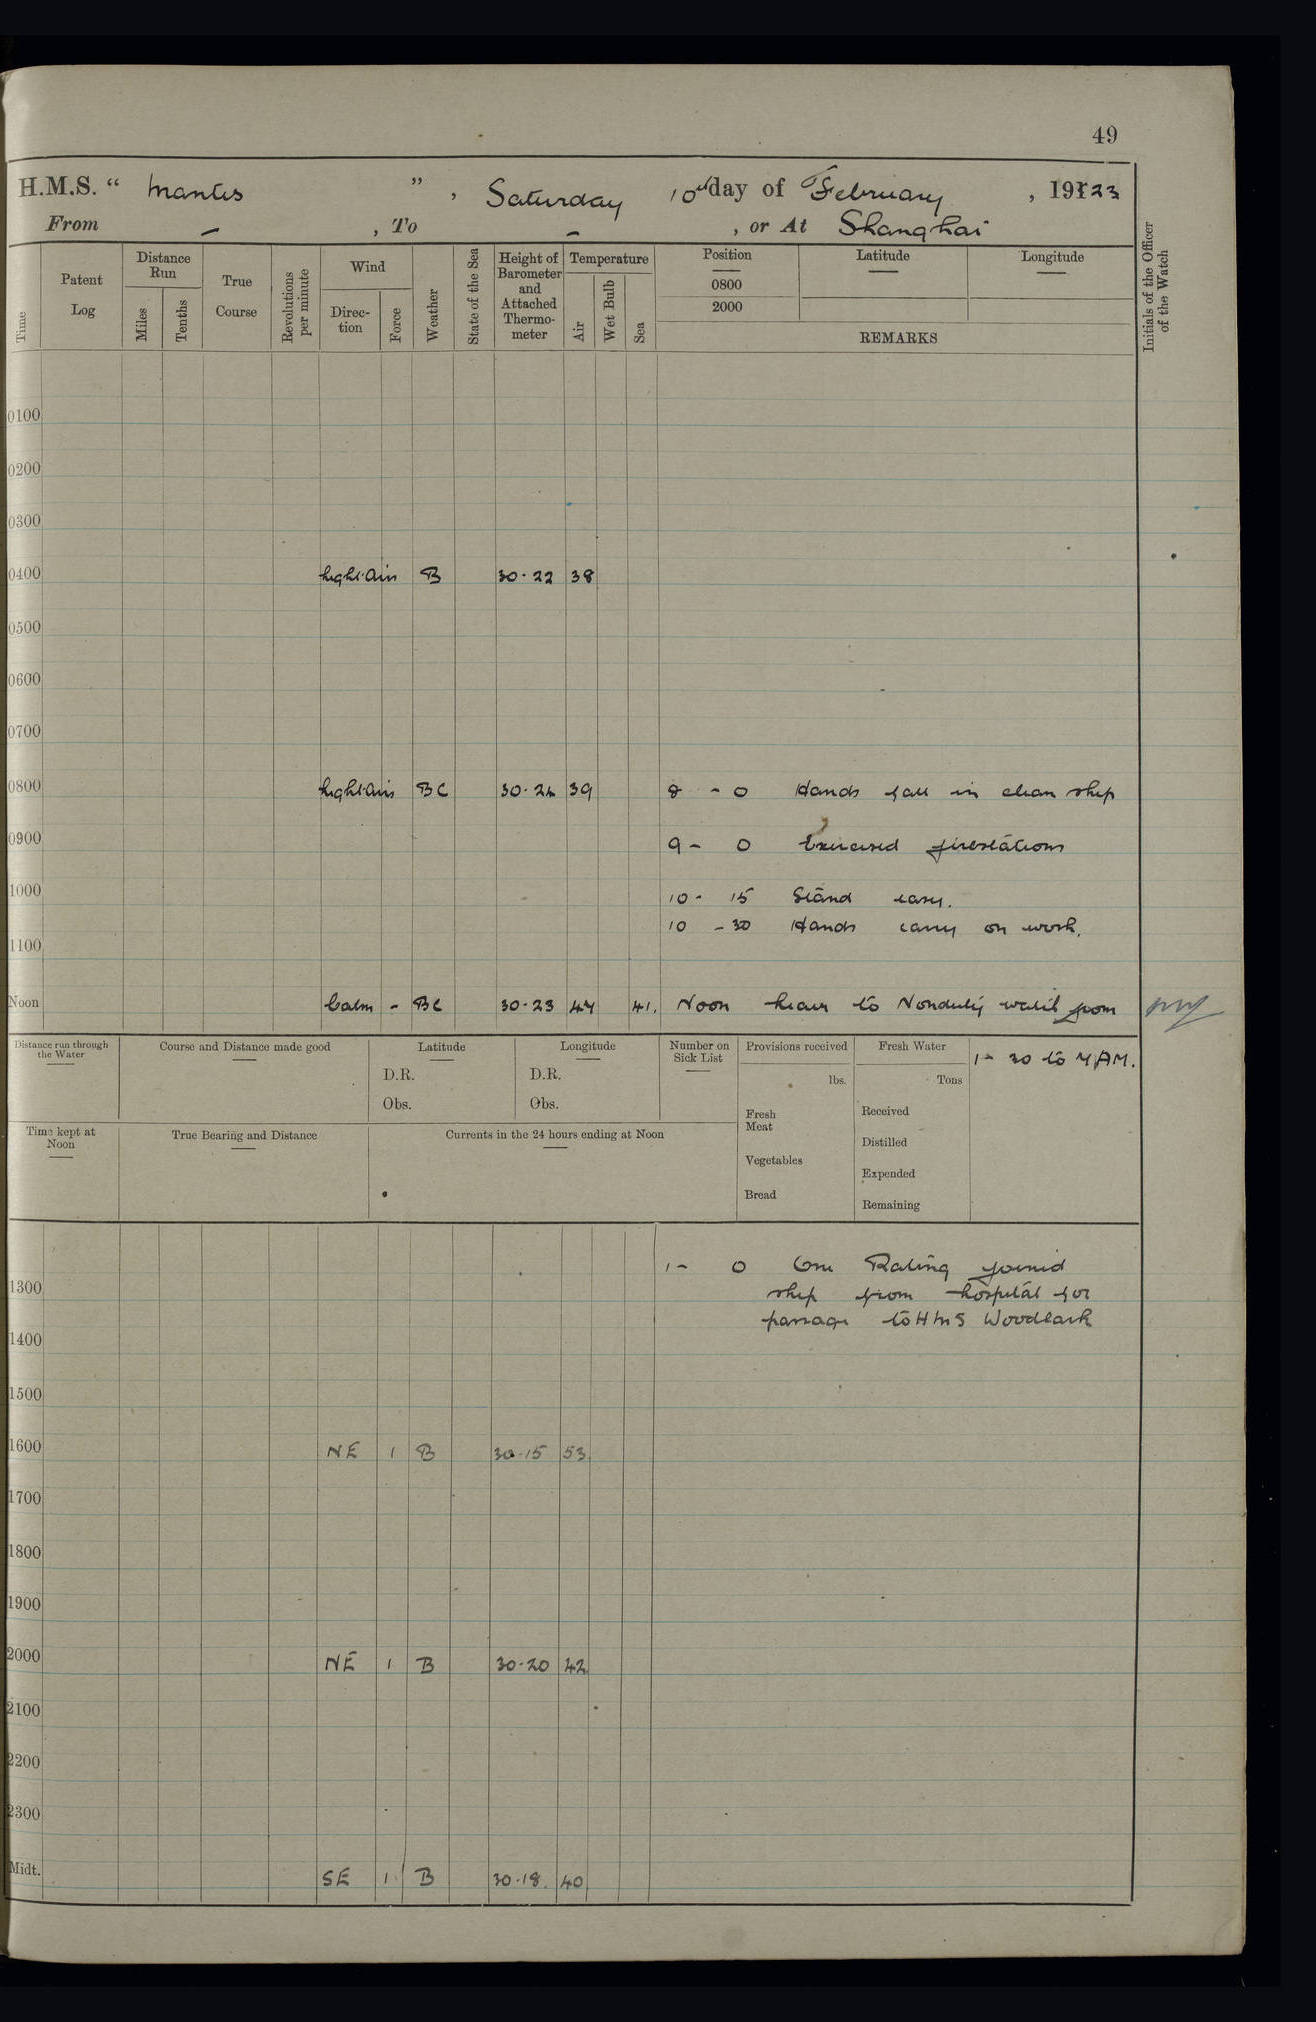 49
H.M.S. “ Mantis ”, Saturday 10th day of February, 1923
From –, To –, or At Shanghai
Time
Patent Log
Distance Run
Miles
Tenths
True Course
Revolutions per minute
Wind
Direc-tion
Force
Weather
State of the Sea
Height of Barometer and Attached Thermo-meter
Temperature
Air
Wet Bulb
Sea
Position
0800
2000
Latitude
Longitude
REMARKS
Initials of the Officer of the Watch
0100
0200
0300
0400 light Airs B 30.22 38
0500
0600
0700
0800 light Airs BC 30.24 39 8 - 0 Hands fall in clean ship
0900 9 - 0 Exercised firestations
1000 10 - 15 Stand easy.
10 - 30 Hands carry on work.
1100
Noon Calm - BC 30.23 47 41. Noon leave to Nonduty watch from
1 - 30 to 7 AM.
Distance run through the Water
Course and Distance made good
Latitude
D.R.
Obs.
Longitude
D.R.
Obs.
Number on Sick List
Provisions received
lbs.
Fresh Meat
Vegetables
Bread
Fresh Water
Tons
Received
Distilled
Expended
Remaining
Time kept at Noon
True Bearing and Distance
Currents in the 24 hours ending at Noon
1 - 0 One Rating joined
1300 ship from hospital for
passage to HMS Woodlark
1400
1500
1600 NE 1 B 30.15 53
1700
1800
1900
2000 NE 1 B 30.20 42
2100
2200
2300
Midt. SE 1 B 30.18 40